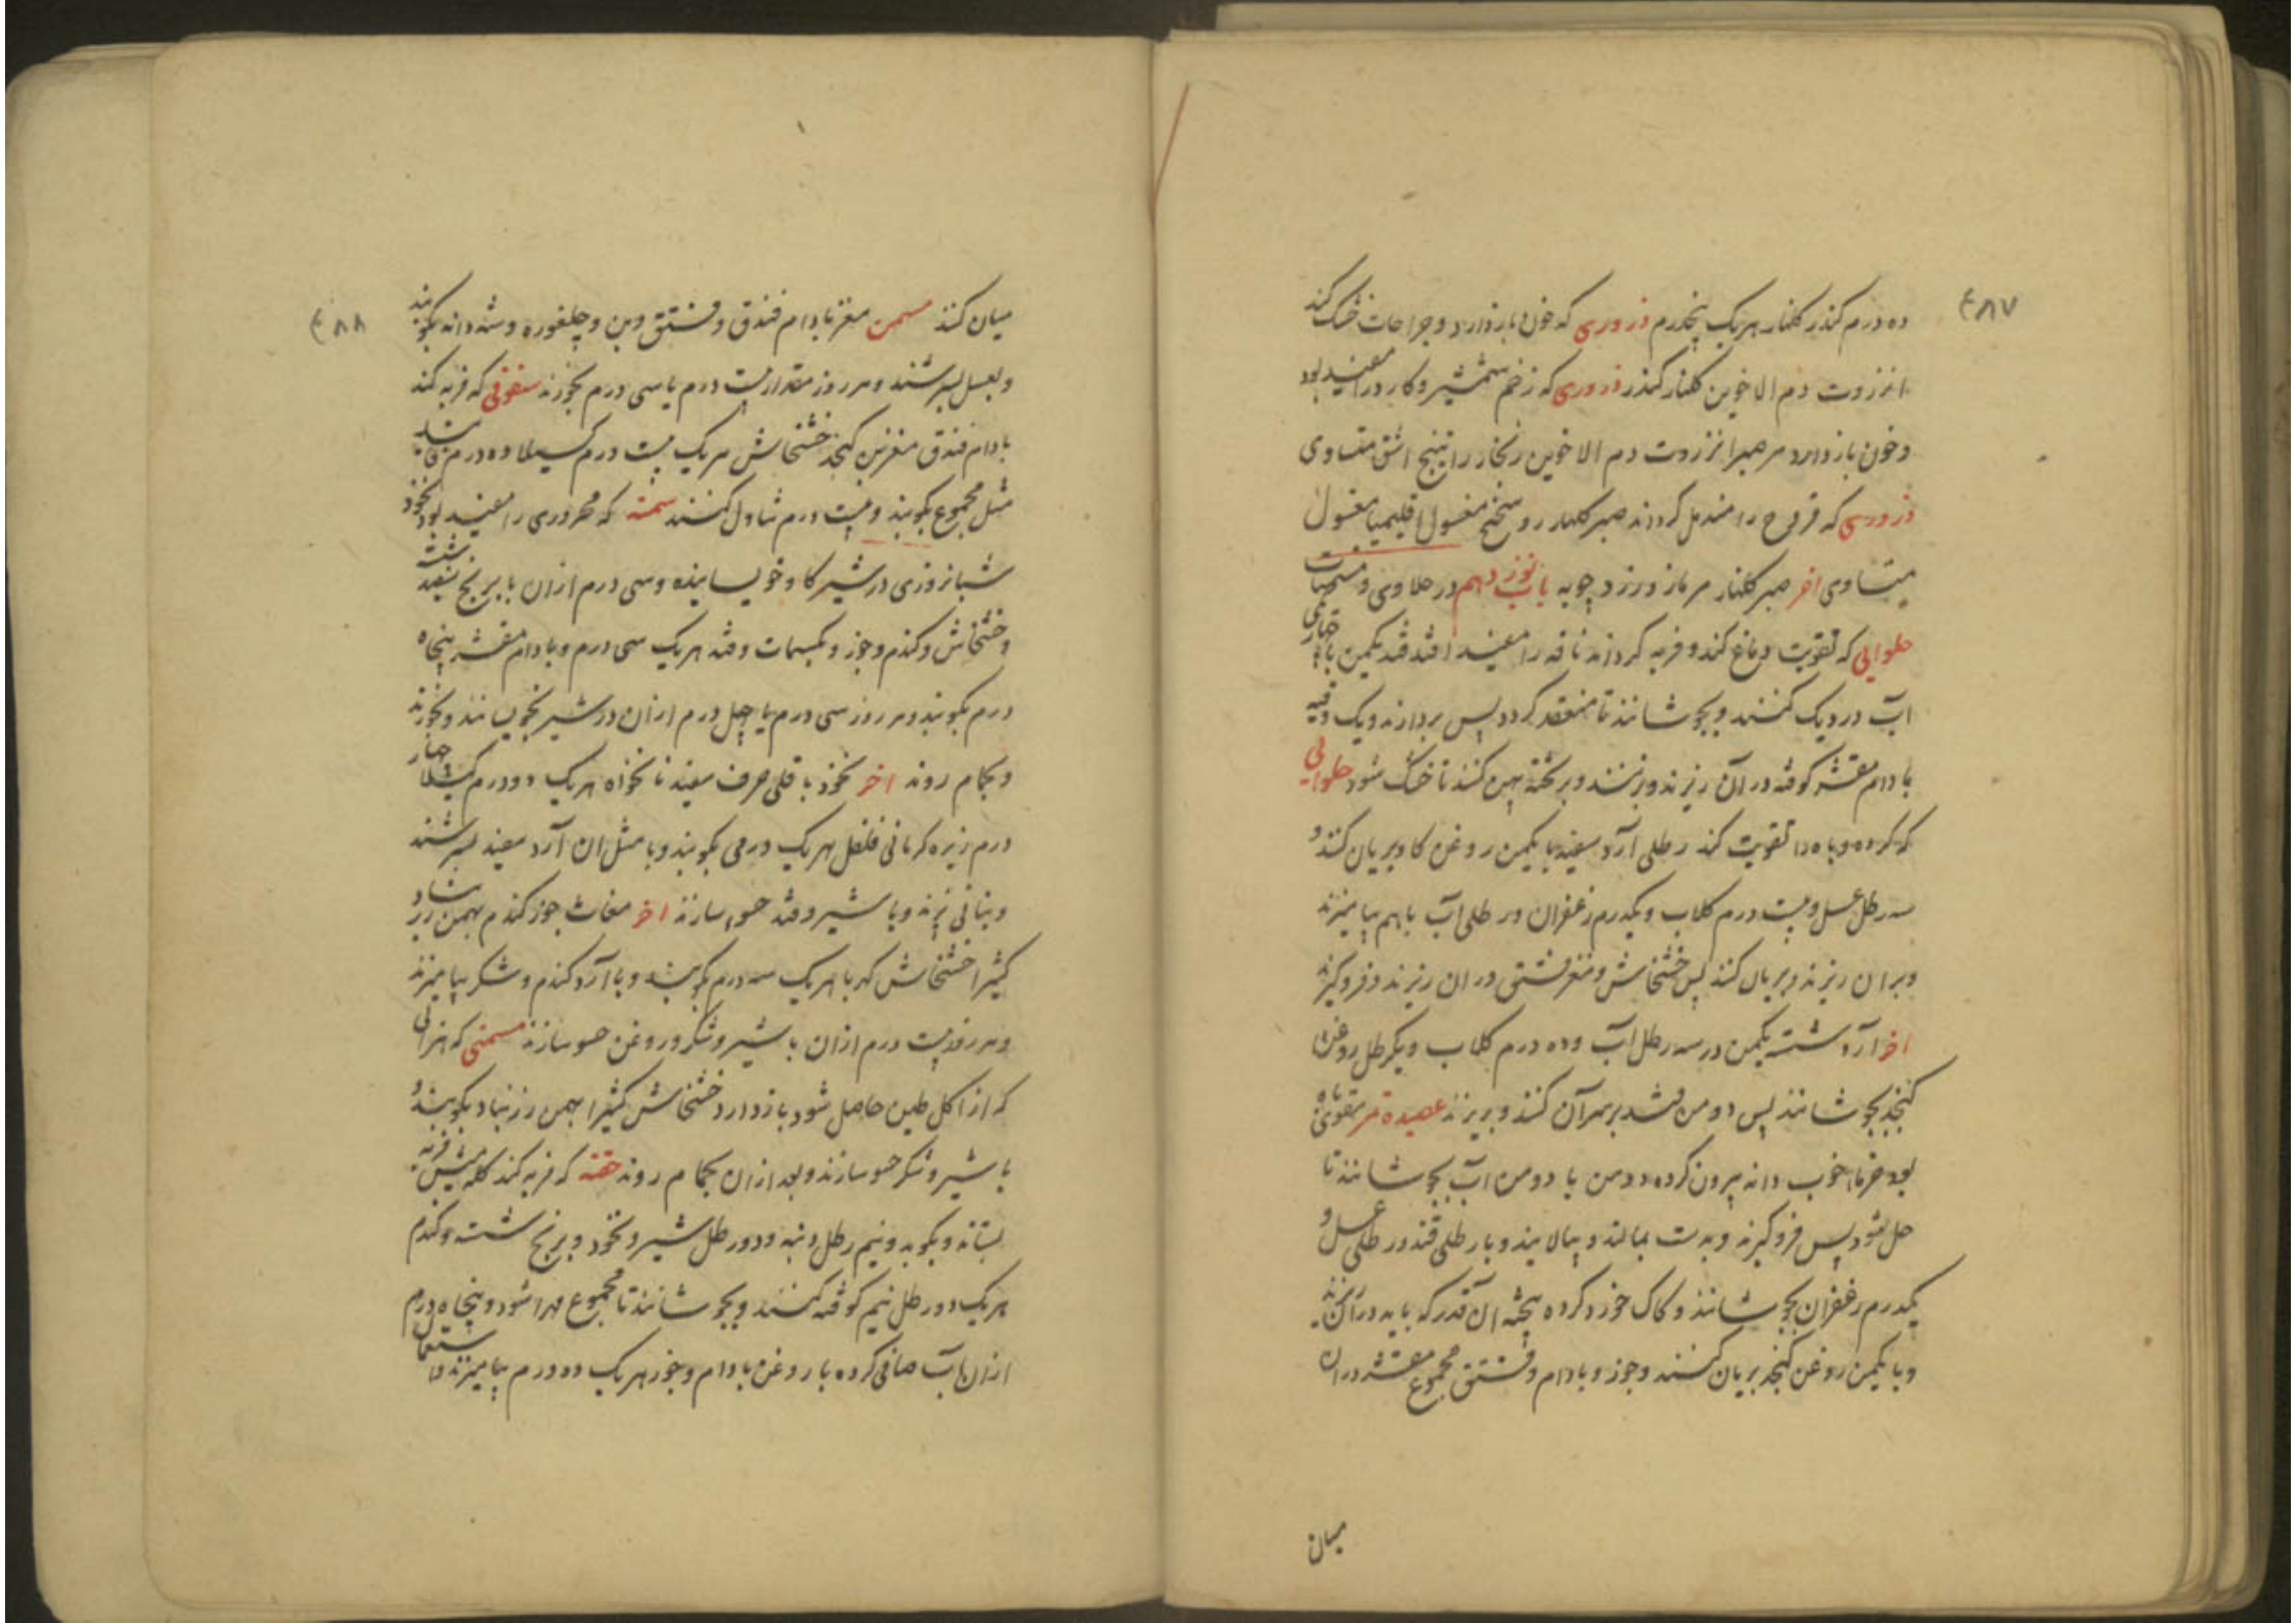 ۴۸۷
ده درم کندر کلنار هریک پنجدرم ذروری که خون باز دارد و جراحات خشک کند
انزروت دم الاخوین کلنار کندر ذروری که زخم شمشیر و کارد را مفید بود
و خون باز دارد مر صبر انزروت دم الاخوین زنجار راتینج اشق متساوی
ذروری که قروح را مندمل کرداند صبر کلنار روسختج مغسول اقلیمیا مغسول
متساوی اخر صبر کلنار مر مازو زردچوبه باب نوزدهم در حلاوی و مسمنات
حلوایی که تقویت دماغ کند و فربه کرداند ناقه را مفید افتد قند یکمن با چهار یکی
آب در دیک کنند و بجوشانند تا منعقد کردد پس بردارند و یک وقیه
بادام مقشر کوفته در آن ریزند و بزنند و بر تخته پهن کنند تا خشک شود حلوایی
که کرده و باه را تقویت کند رطلی آرد سفید با یکمن روغن کاو بریان کنند و
سه رطل عسل و بیست درم کلاب و یکدرم زعفران و رطلی آب باهم بیامیزند
و بر ان ریزند و بریان کنند پس خشخاش و مغز فستق در ان ریزند و فروکیرند
اخر آرد شسته یکمن در سه رطل آب و ده درم کلاب و یکرطل روغن
کنجد بجوشانند پس دومن قند بر سر آن کنند و بریزند عصیده تمر مقوی باه
بود خرما خوب دانه بیرون کرده دومن با دومن آب بجوشانند تا
حل شود پس فروکیرند و بدست بمالند و بپالایند و با رطلی قند و رطلی عسل و
یکدرم زعفران بجوشانند و کاک خورد کرده پخته ان قدر که باید در آن ریزند
و با یکمن روغن کنجد بریان کنند و جوز و بادام و فستق مجموع مقشر در ان
میان
۴۸۸
میان کنند مسمن مغز بادام فندق و فستق و بن و چلغوزه و شهدانه بکوبند
و بعسل بسرشند و هر روز مقدار بیست درم یا سی درم بخورند سفوفی که فربه کند
بادام فندق مغز بن کنجد خشخاش هریک بیست درم کسیلا ده درم فانید
مثل مجموع بکوبند و بیست درم تناول کنند سمنه که محروری را مفید بود نخود
شبانروزی در شیر کاو خویسانیده و سی درم ازان با برنج سفید شسته
و خشخاش و کندم و جوز و بکسمات و قند هریک سی درم و بادام مقشر پنجاه
درم بکوبند و هر روز سی درم یا چهل درم ازان در شیر بخویسانند و بخورند
و بحمام روند اخر نخود باقلی حرف سفید نانخواه هریک دو درم کسیلا چهار
درم زیره کرمانی فلفل هریک درمی بکوبند و با مثل ان آرد سفید بسرشند
و بنانی پزند و با شیر و قند حسو سازند اخر مغاث جوز کندم بهمن زرنباد
کثیرا خشخاش کهربا هریک سه درم بکوبند و با آرد کندم و شکر بیامیزند
و هر روز بیست درم ازان با شیر و شکر و روغن حسو سازند مسمنی که هزالی
که از اکل طین حاصل شود باز دارد خشخاش کثیرا بهمن زرنباد بکوبند و
با شیر و شکر حسو سازند و بعد ازان بحمام روند حقنه که فربه کند کله میش فربه
بستانند و بکوبند و نیم رطل دنبه و دو رطل شیر و نخود و برنج شسته و کندم
هریک دو رطل نیم کوفته کنند و بجوشانند تا مجموع مهرا شود و پنجاه درم
ازان آب صافی کرده با روغن بادام و جوز هریک ده درم بیامیزند و استعمال